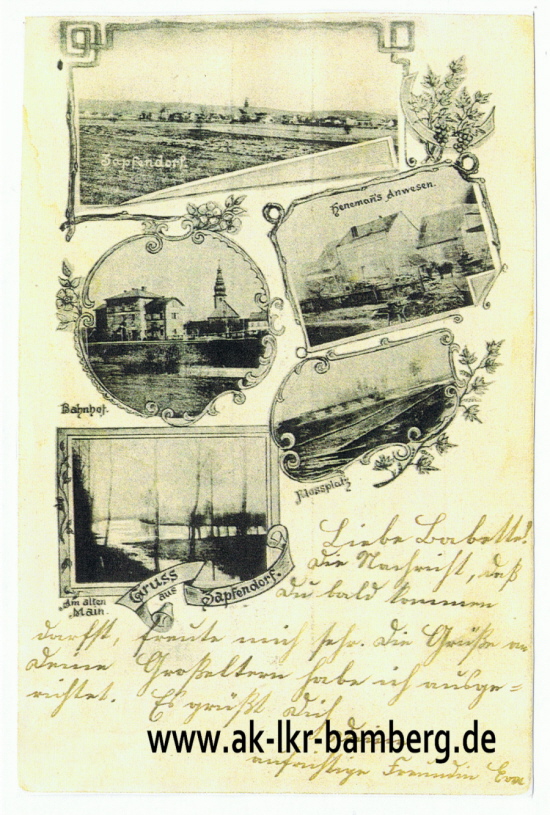 Zapfendorf.
Heneman's Anwesen.
Bahnhof.
Flossplatz
Am alten
Main.
Gruss
aus
Zapfendorf.
Liebe Babette!
Die Nachricht, daß
Du bald kommen
darfst, freute mich sehr. Die Grüße an
Deine Großeltern habe ich ausge=
richtet. Es grüßt Dich
Deine
aufrichtige Freundin Eva
www.ak-lkr-bamberg.de